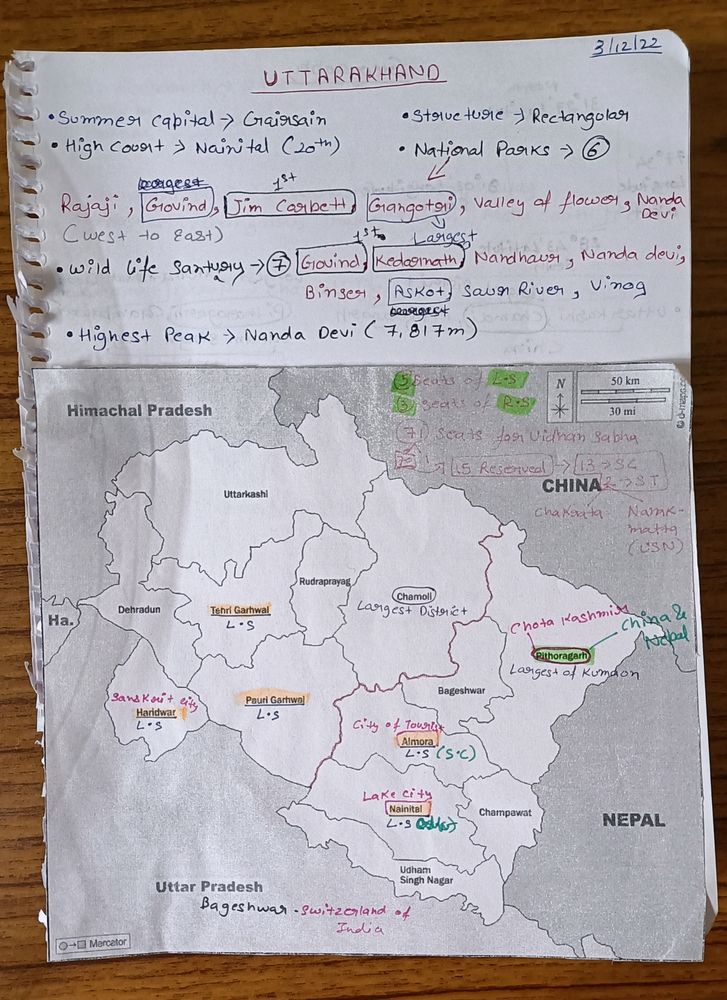 3/12/22
UTTARAKHAND
• Summer capital → Gairsain
• Structure → Rectangular
• High Court → Nainital (20th)
• National Parks → 6
1st
Rajaji, Govind, Jim Carbett, Gangotri, Valley of flower, Nanda Devi
(West to East)
Largest
1st
• Wild life Santury → 7 Govind, Kedarnath, Nandhaur, Nanda devi,
Binser, Askot, Saun River, Vinog
• Highest Peak → Nanda Devi (7,817m)
5 Seats of L.S
3 seats of R.S
71 seats for Vidhan Sabha
15 Reserved → 13 → SC
2 → ST
Chakrata
Namk-
matta
(USN)
N
50 km
30 mi
© d-maps.c
Himachal Pradesh
CHINA
Uttarkashi
Rudraprayag
Chamoli
Largest District
Ha.
Dehradun
Tehri Garhwal
L.S
Chota Kashmir
China &
Nepal
Pithoragarh
Largest of Kumaon
Sanskrit city
Haridwar
L.S
Pauri Garhwal
L.S
Bageshwar
City of Tourist
Almora
L.S (S.C)
Lake City
Nainital
L.S
Champawat
NEPAL
Udham
Singh Nagar
Uttar Pradesh
Bageshwar - Switzerland of
India
Mercator